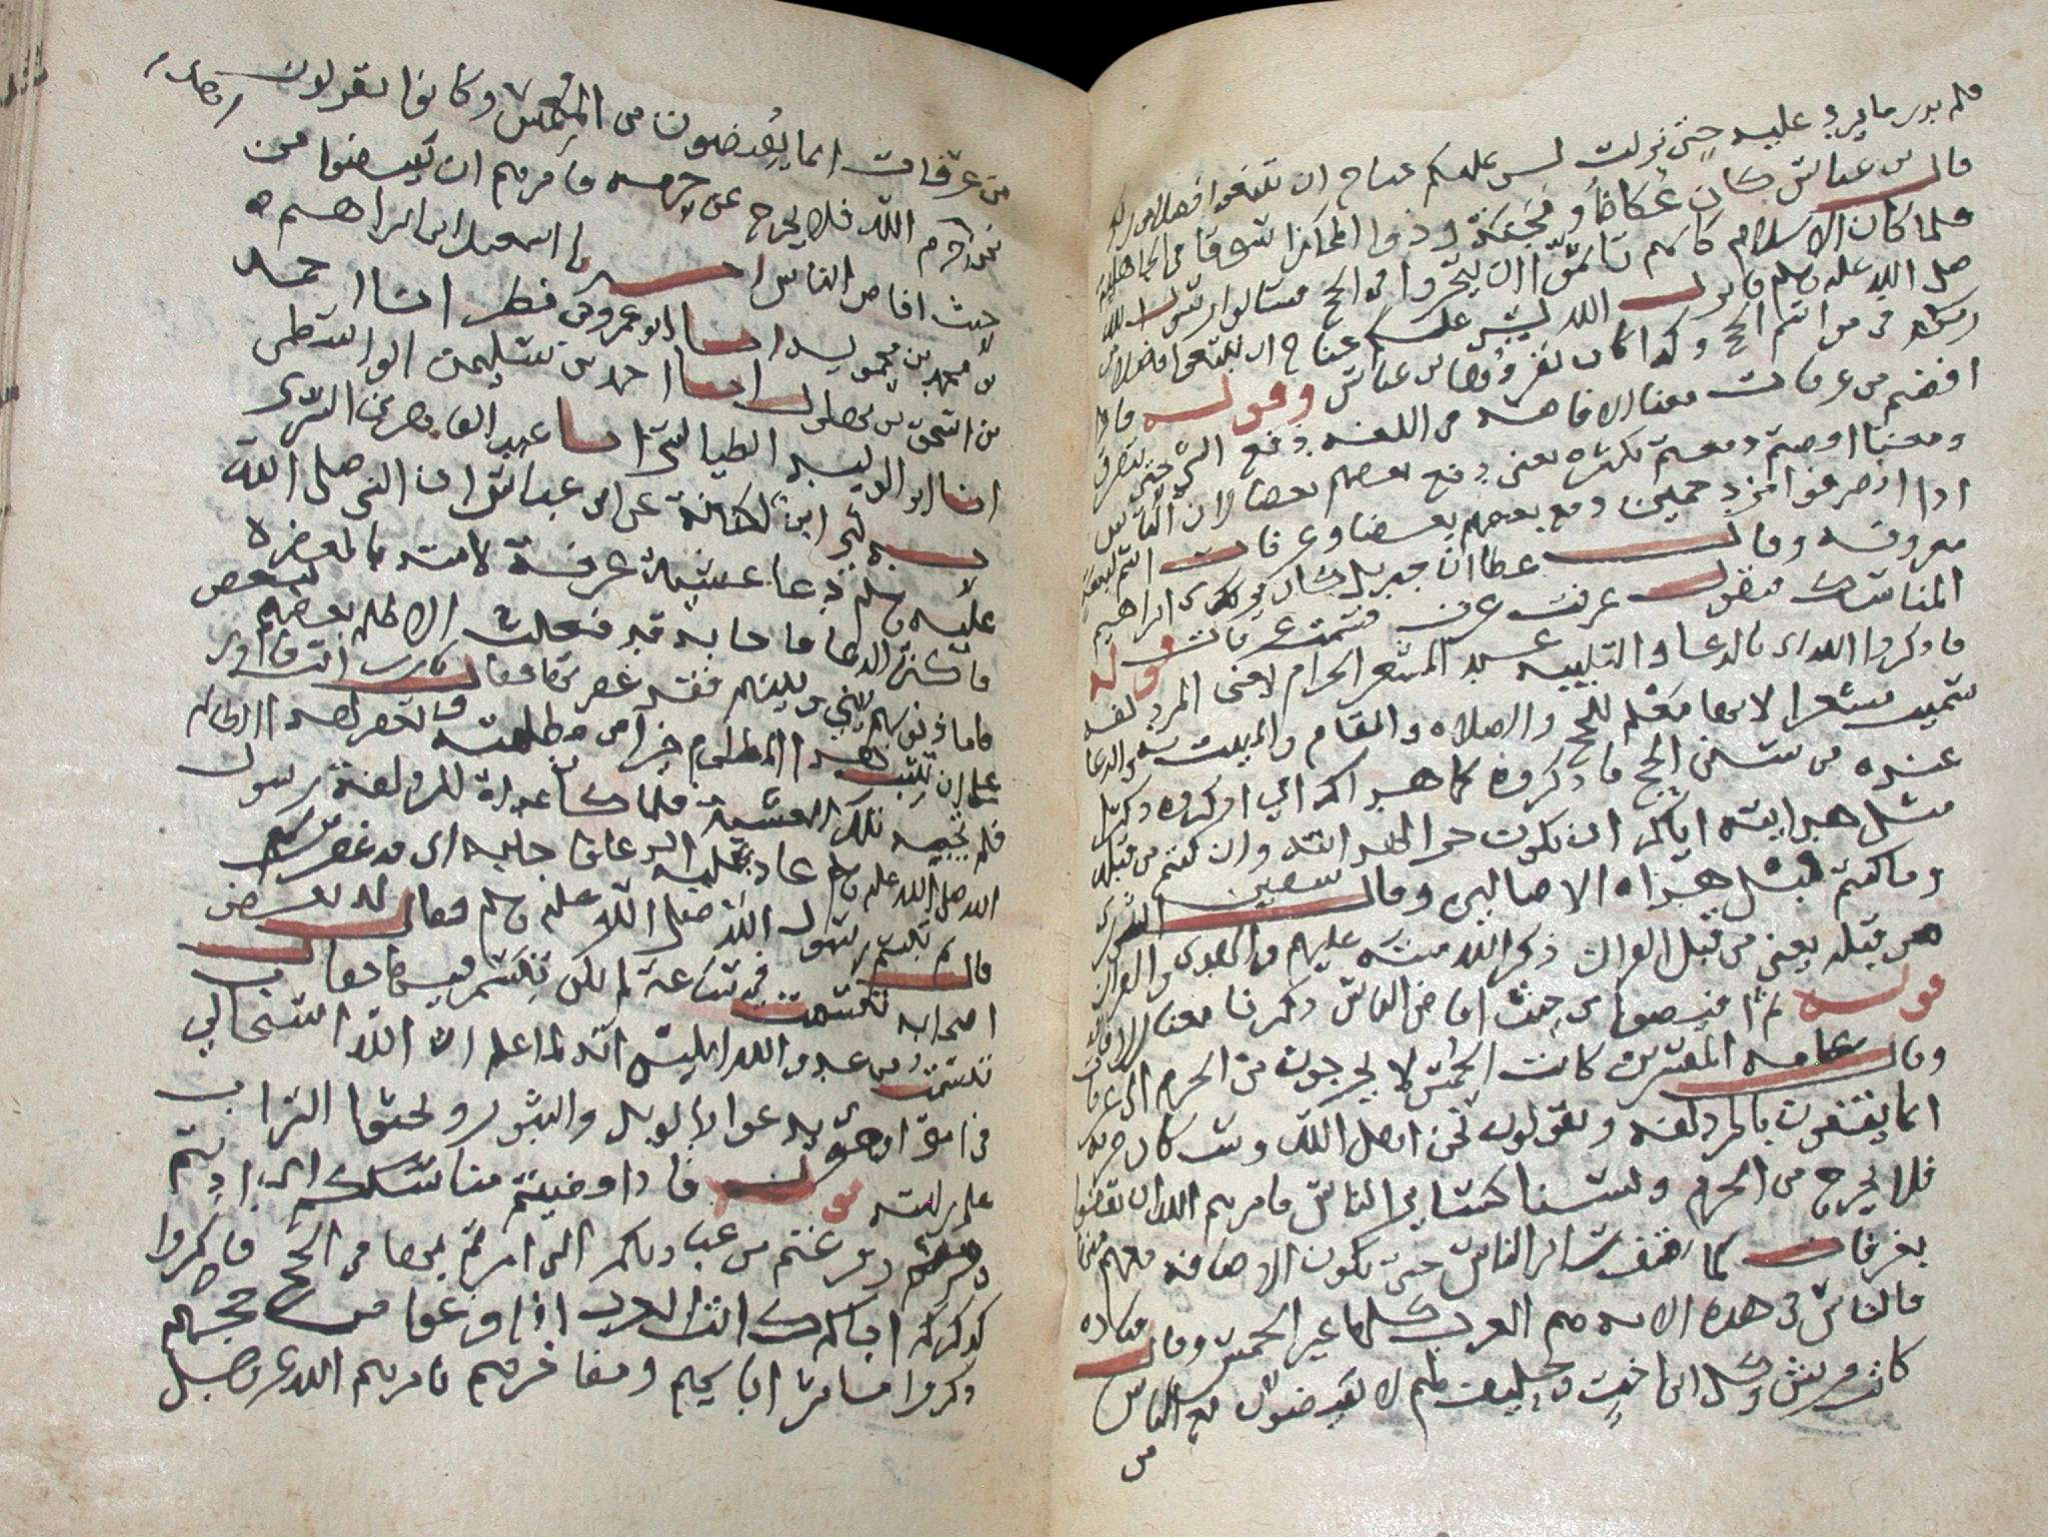 فلم يدر ما يرد عليه حتى نزلت ليس عليكم جناح ان تبتغوا فضلا من ربكم
قال بن عباس كان عُكاظ ومَجَنة وذوا المجاز اسواقا في الجاهلية
فلما كان الاسلام كانهم تاثموا ان يتجروا في الحج فسالوا رسول الله
صلى الله عليه وسلم فانزل الله ليس عليكم جناح ان تبتغوا فضلا من
ربكم في مواسم الحج وكذا كان يقروها بن عباس وقوله فاذا
افضتم من عرفات معنا الافاضه في اللغه دفع الشي حتى يتفرق
ومعنا افضتم دفعتم بكثره يعنى دفع بعضهم بعضا لان الناس
اذا انصرفوا مزدحمين دفع بعضهم بعضا وعرفات اسم لبقعة
معروفه وقال عطا ان جبريل كان يرى ابراهيم
المناسك فيقول عرفت عرفت فسميت عرفات قوله
فاذكروا الله اى بالدعا والتلبيه عند المشعر الحرام يعنى المزدلفه
سميت مشعرا لانها مَعْلم للحج والصلاه والمقام والمبيت به والدعا
عنده من سنن الحج فاذكروه كما هداكم اي اذكروه ذكرا
مثل هدايته اياكم ان يكون جزا لهدايته وان كنتم من قبله
وما كنتم قبل هداه الا ضالين وقال سفين الثورى
من قبله يعنى من قبل القران ذكر الله منته عليهم بالهدى والقران
قوله ثم افيضوا من حيث افاض الناس ذكرنا معنا الافاضه
وقال عامه المفسرين كانت الحُمْس لا يخرجون من الحرم الى عرفات
انما يقفون بالمزدلفه ويقولون نحن اهل الله وسكان حرمه
فلا نخرج من الحرم ولسنا كسائر الناس فامرهم الله ان يقفوا
بعرفات كما يقف سائر الناس حتى تكون الافاضه معهم منها
فالناس في هذه الايه هم العرب كلها غير الحمس وقال قتاده
كانت قريش وكل ابن اخت وحليف لهم لا يفيضون مع الناس
من
من عرفات انما يُفيضون من المُغَمَّس وكانوا يقولون
نحن حرم الله فلا نخرج عن حرمه فامرهم ان يفيضوا من
حيث افاض الناس با اسمعيل ابن ابراهيم
بن محمد بن حمويه انا ابو عمرو بن مطر انا احمد
بن اسحق بن بهلول انا احمد بن سليمن الواسطى
انا ابو الوليد الطيالسى انا عبد القاهر بن السرى
ابن لكنانة عن ابن عباس ان النبى صلى الله
عليه وسلم دعا عشية عرفة لامته بالمغفره
فاكثر الدعا فاجابه قد فعلت الا ظلم بعضهم لبعض
فاما ذنوبهم بينى وبينهم فقد غفرتها فقال يارب انت قادر
على ان تثيب هذا المظلوم خيرا من مظلمته وتغفر لهذا الظالم
فلم يجبه تلك العشية فلما كان غداة المزدلفة رسول
الله صلى الله عليه وسلم عاد عليه الدعا فاجابه اى قد غفرت
ثم تبسم رسول الله صلى الله عليه وسلم فقال له بعض
اصحابه تبسمت في ساعة لم تكن تبسم فيها فقال
تبسمت من عدو الله ابليس انه لما علم ان الله استجاب لي
في امتى اهوى يدعوا بالويل والثبور ويحثوا التراب
على راسه قوله فاذا قضيتم مناسككم اى اديتم
وفرغتم من عباداتكم التى امرتم بها في الحج فاذكروا
كذكركم اباكم كانت العرب اذا فرغوا من حجهم
ذكروا مآثر اباهم ومفاخرهم فامرهم الله عز وجل